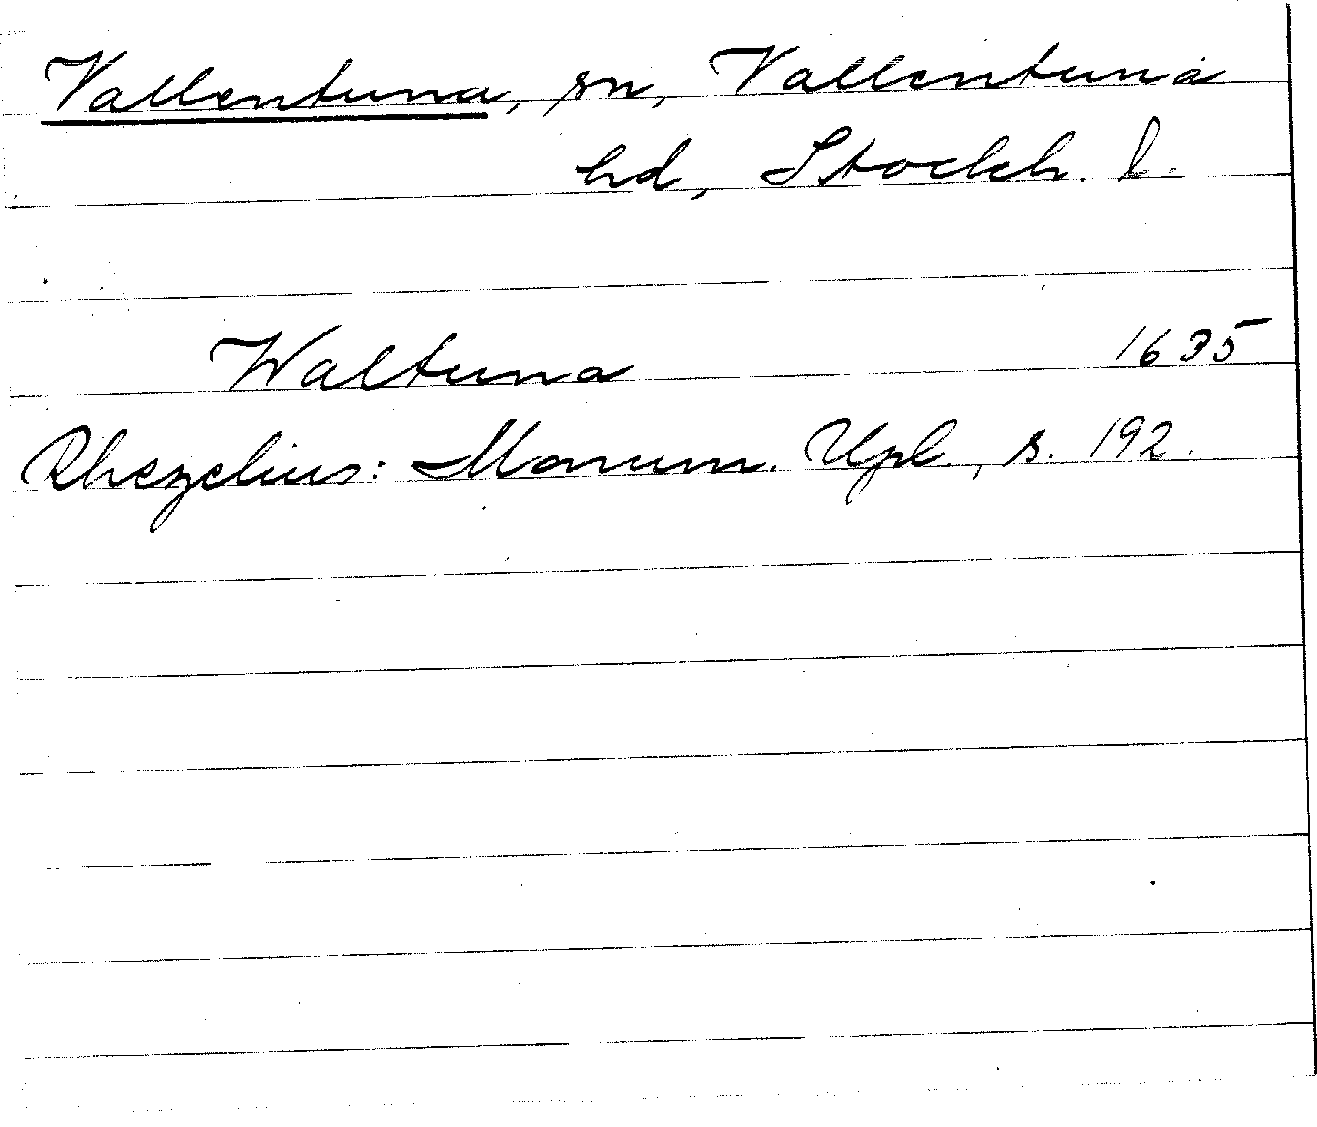 Vallentuna, sn, Vallentuna
hd, Stockh. l.
Waltuna 1635
Rhezelius: Monum. Upl., s. 192.